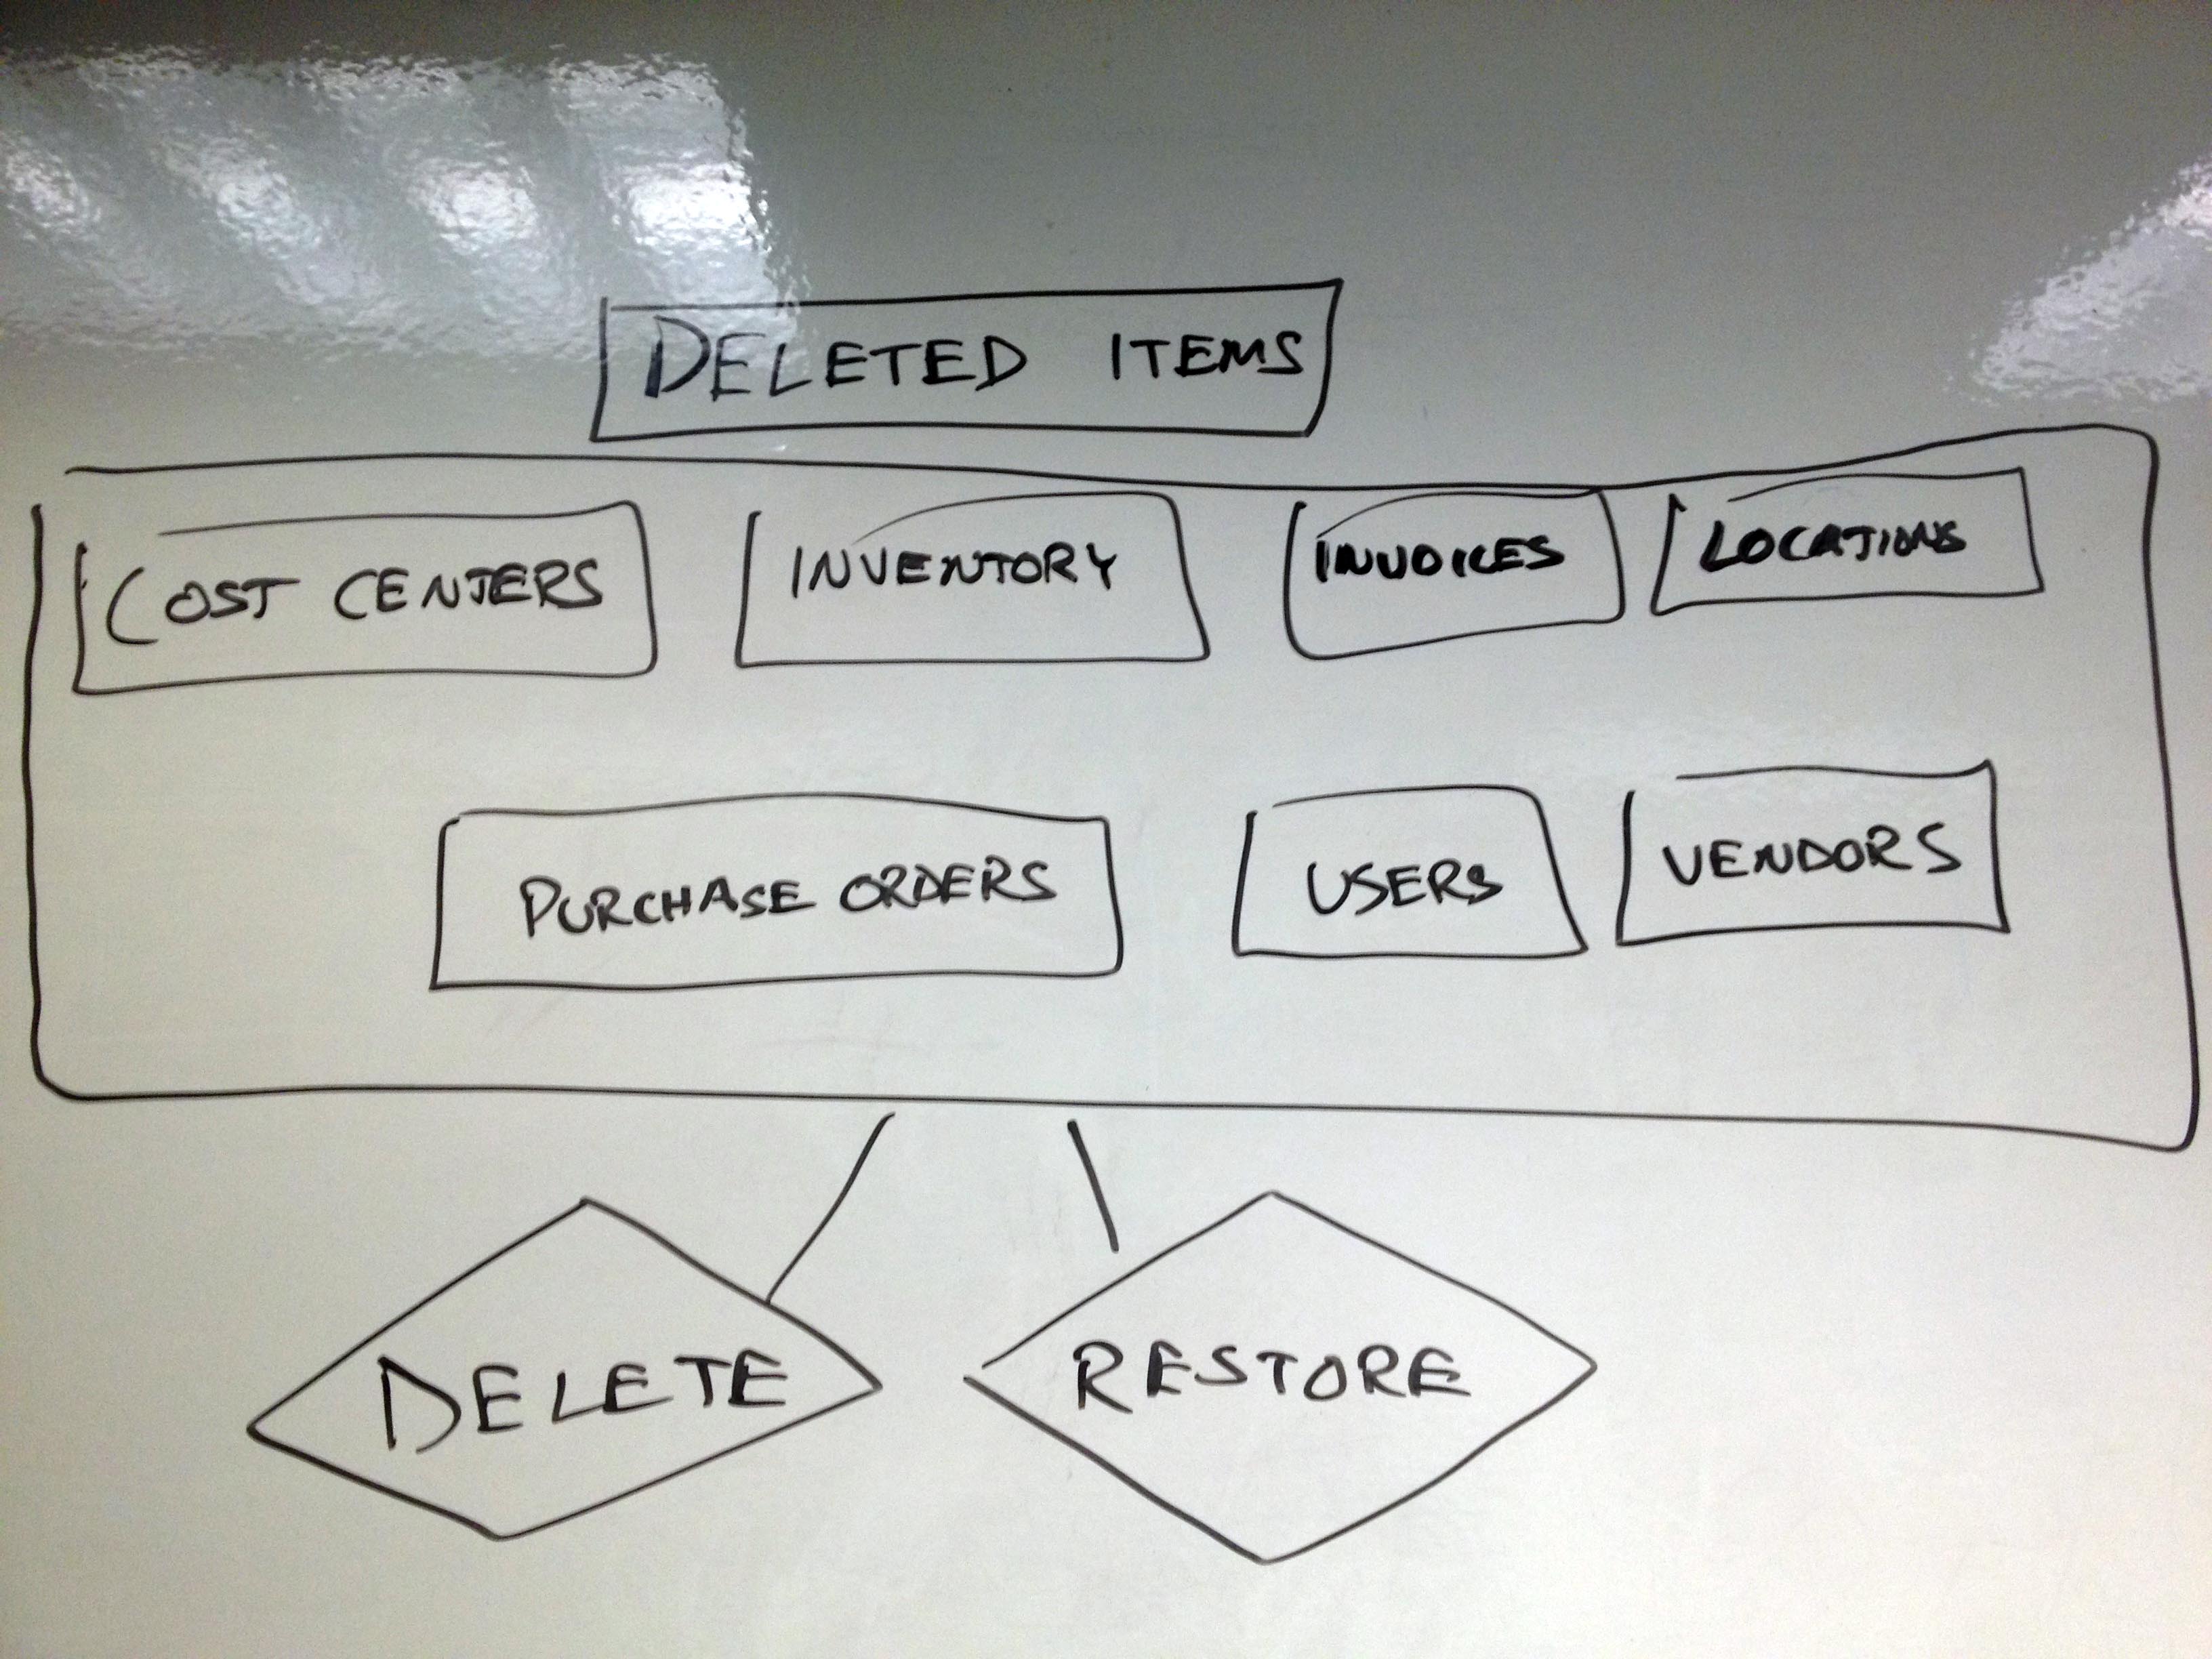 DELETED ITEMS
COST CENTERS
INVENTORY
INVOICES
LOCATIONS
PURCHASE ORDERS
USERS
VENDORS
DELETE
RESTORE